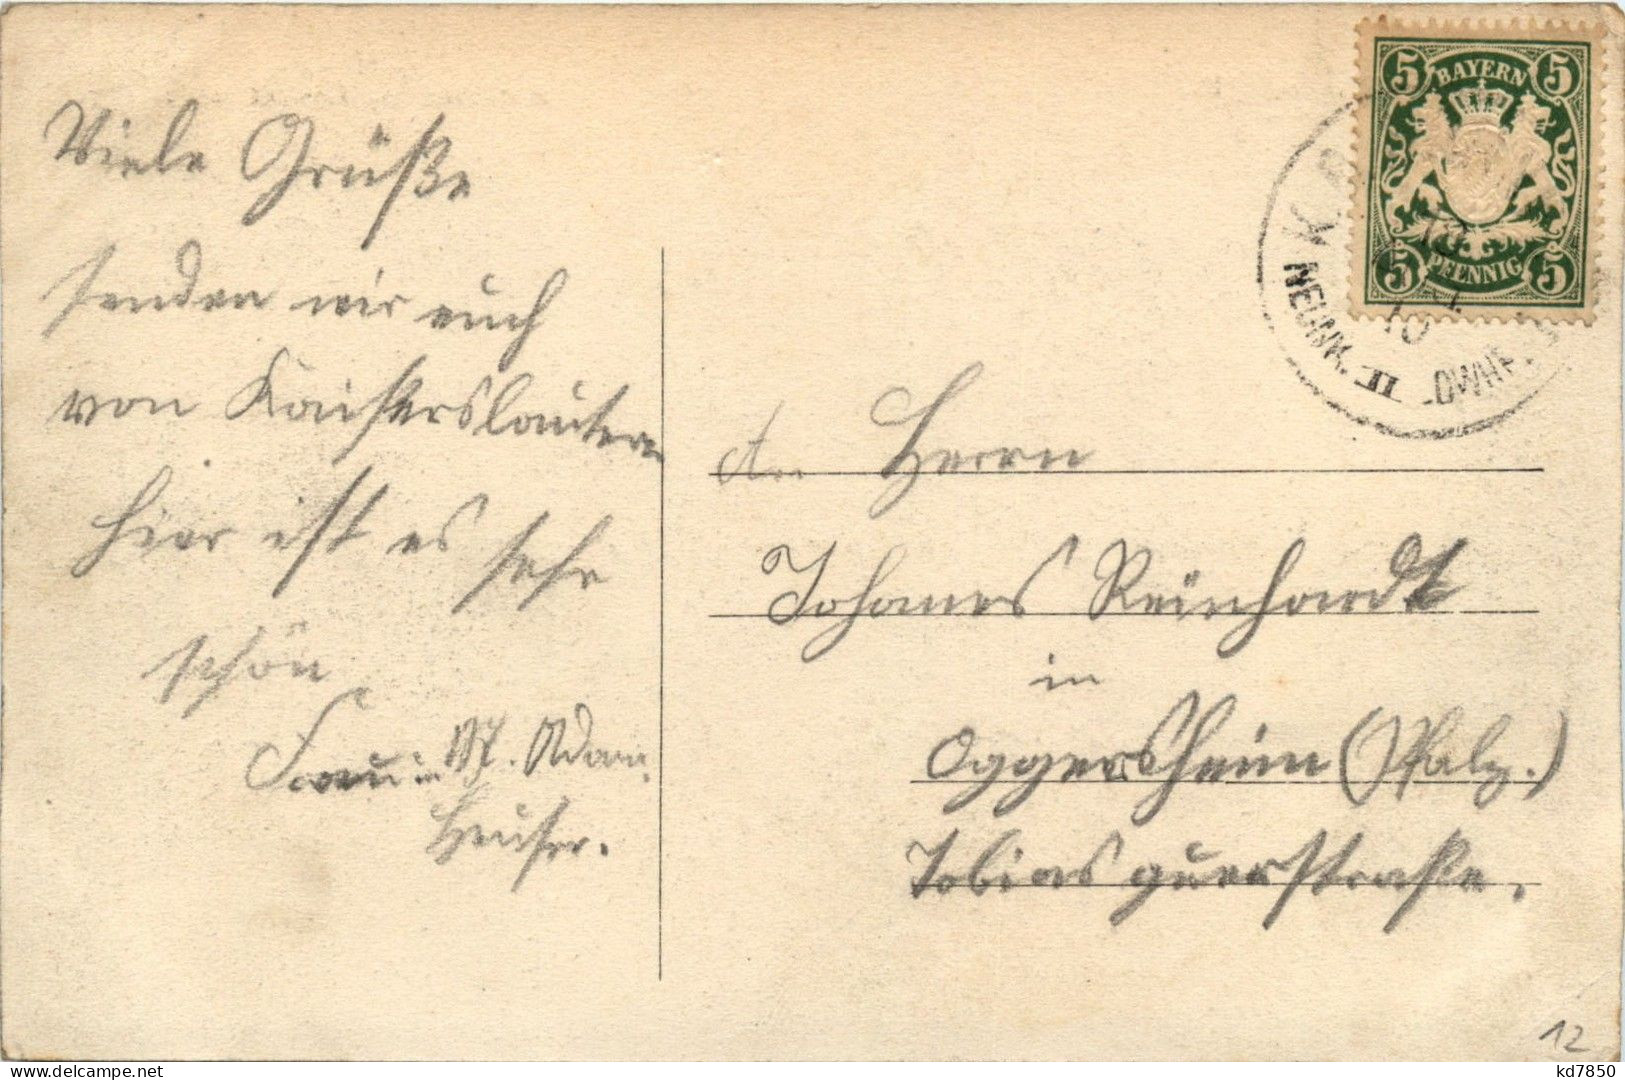 Viele Grüße
senden wir euch
von Kaiserslautern
hier ist es sehr
schön
Adam
Heuser.
An Herrn
Johames Reinhardt
in
Oggersheim (Pfalz.)
Tobias querstraße.
5 BAYERN 5
5 PFENNIG 5
K.
NEUNK. II
10
12
delcampe.net
kd7850